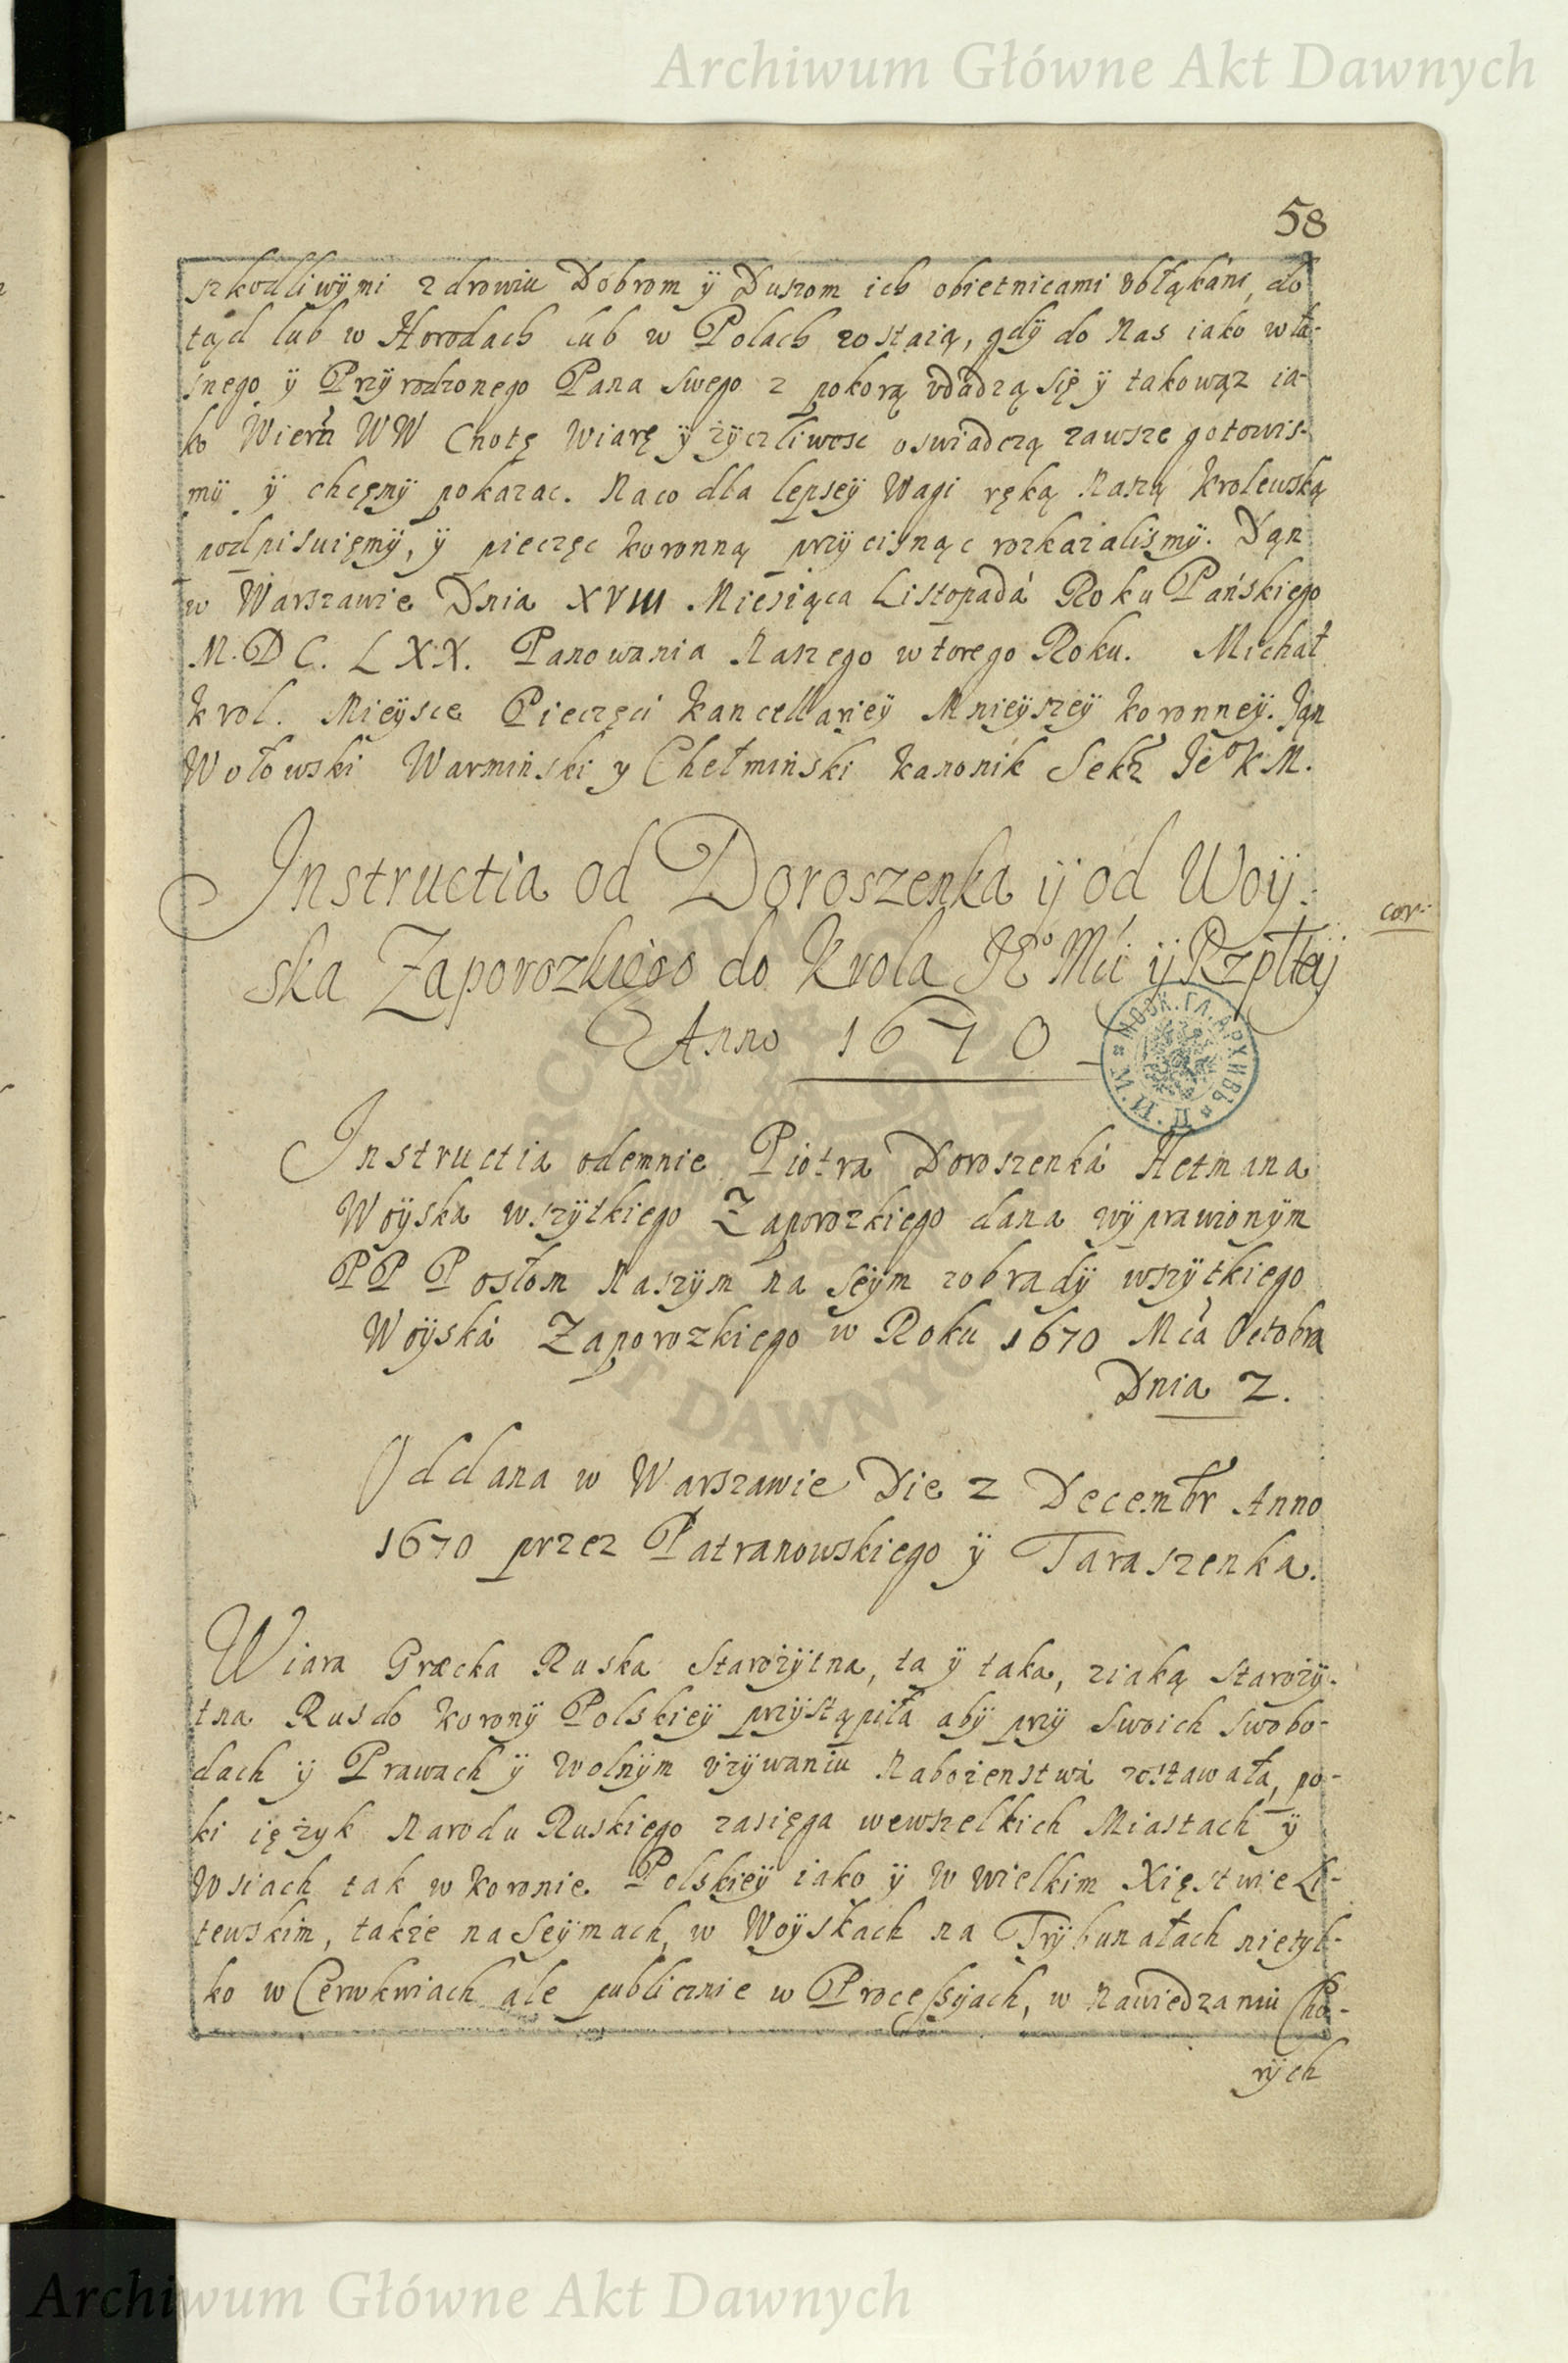 Archiwum Główne Akt Dawnych
58
szkodliwÿmi zdrowiu Dobrom ÿ Duszom ich obietnicami obłąkáni, do
tąd lub w Horodach lub w Polach zostaią, gdÿ do Nas iako wła-
snego ÿ Przÿrodzonego Pana Swego z pokorą vdadzą Się ÿ takowąz ia-
ko Wiern WW Cnotę Wiarę ÿ życzliwosc oswiadczą zawsze gotowis-
mÿ ÿ chcęmÿ pokazac. Naco dla lepseÿ Wagi ręką Naszą Krolewską
podpisuięmÿ, ÿ pieczęc koronną przÿcisnąc rozkazalismÿ. Dąn
w Warszawie Dnia XVIII Miesiąca Listopadá Roku Pańskiego
M.DC.LXX. Panowania Naszego wtorego Roku. Michał
Krol. Mieÿsce Pieczęci Kancellarieÿ Mnieÿszeÿ Koronneÿ. Jąn
Wołowski Warmiński y Chełmiński Kanonik Sekr Jeº K M.
Instructia od Doroszenka ÿ od Woÿ-
ska Zaporozkiego do Krola JEº Mci ÿ Rzpltej
Anno 1670
cor.
МОСК. ГЛ. АРХИВЪ М. И. Д.
Instructia odemnie Piotra Doroszenká Hetmana
Woÿska wszÿtkiego Zaporozkiego dana wÿprawionÿm
PP Posłom Naszÿm na Seÿm zobradÿ wszÿtkiego
Woÿská Zaporozkiego w Roku 1670 Mcá Octobra
Dnia 2.
Oddana w Warszawie Die 2 Decembr Anno
1670 przez Patranowskiego ÿ Taraszenka.
Wiara Græcka Ruska Starożÿtna, ta ÿ taka, ziaką starożÿ-
tna Rus do Koronÿ Polskieÿ przÿstąpiła abÿ przÿ Swoich swobo-
dach ÿ Prawach ÿ wolnÿm vżÿwaniu Nabożenstwá zostawała, po-
ki ięzyk Narodu Ruskiego zasięga wewszelkich Miastach ÿ
Wsiach tak w Koronie Polskieÿ iako ÿ w wielkim Xięstwie Li-
tewskim, także na Seÿmach, w Woÿskach na Trÿbunałach nietÿl-
ko w Cerwkwiach ale publicznie w Processÿach, w Nawiedzaniu Cho-
rÿch
ARCHIWUM GŁÓWNE AKT DAWNYCH
Archiwum Główne Akt Dawnych